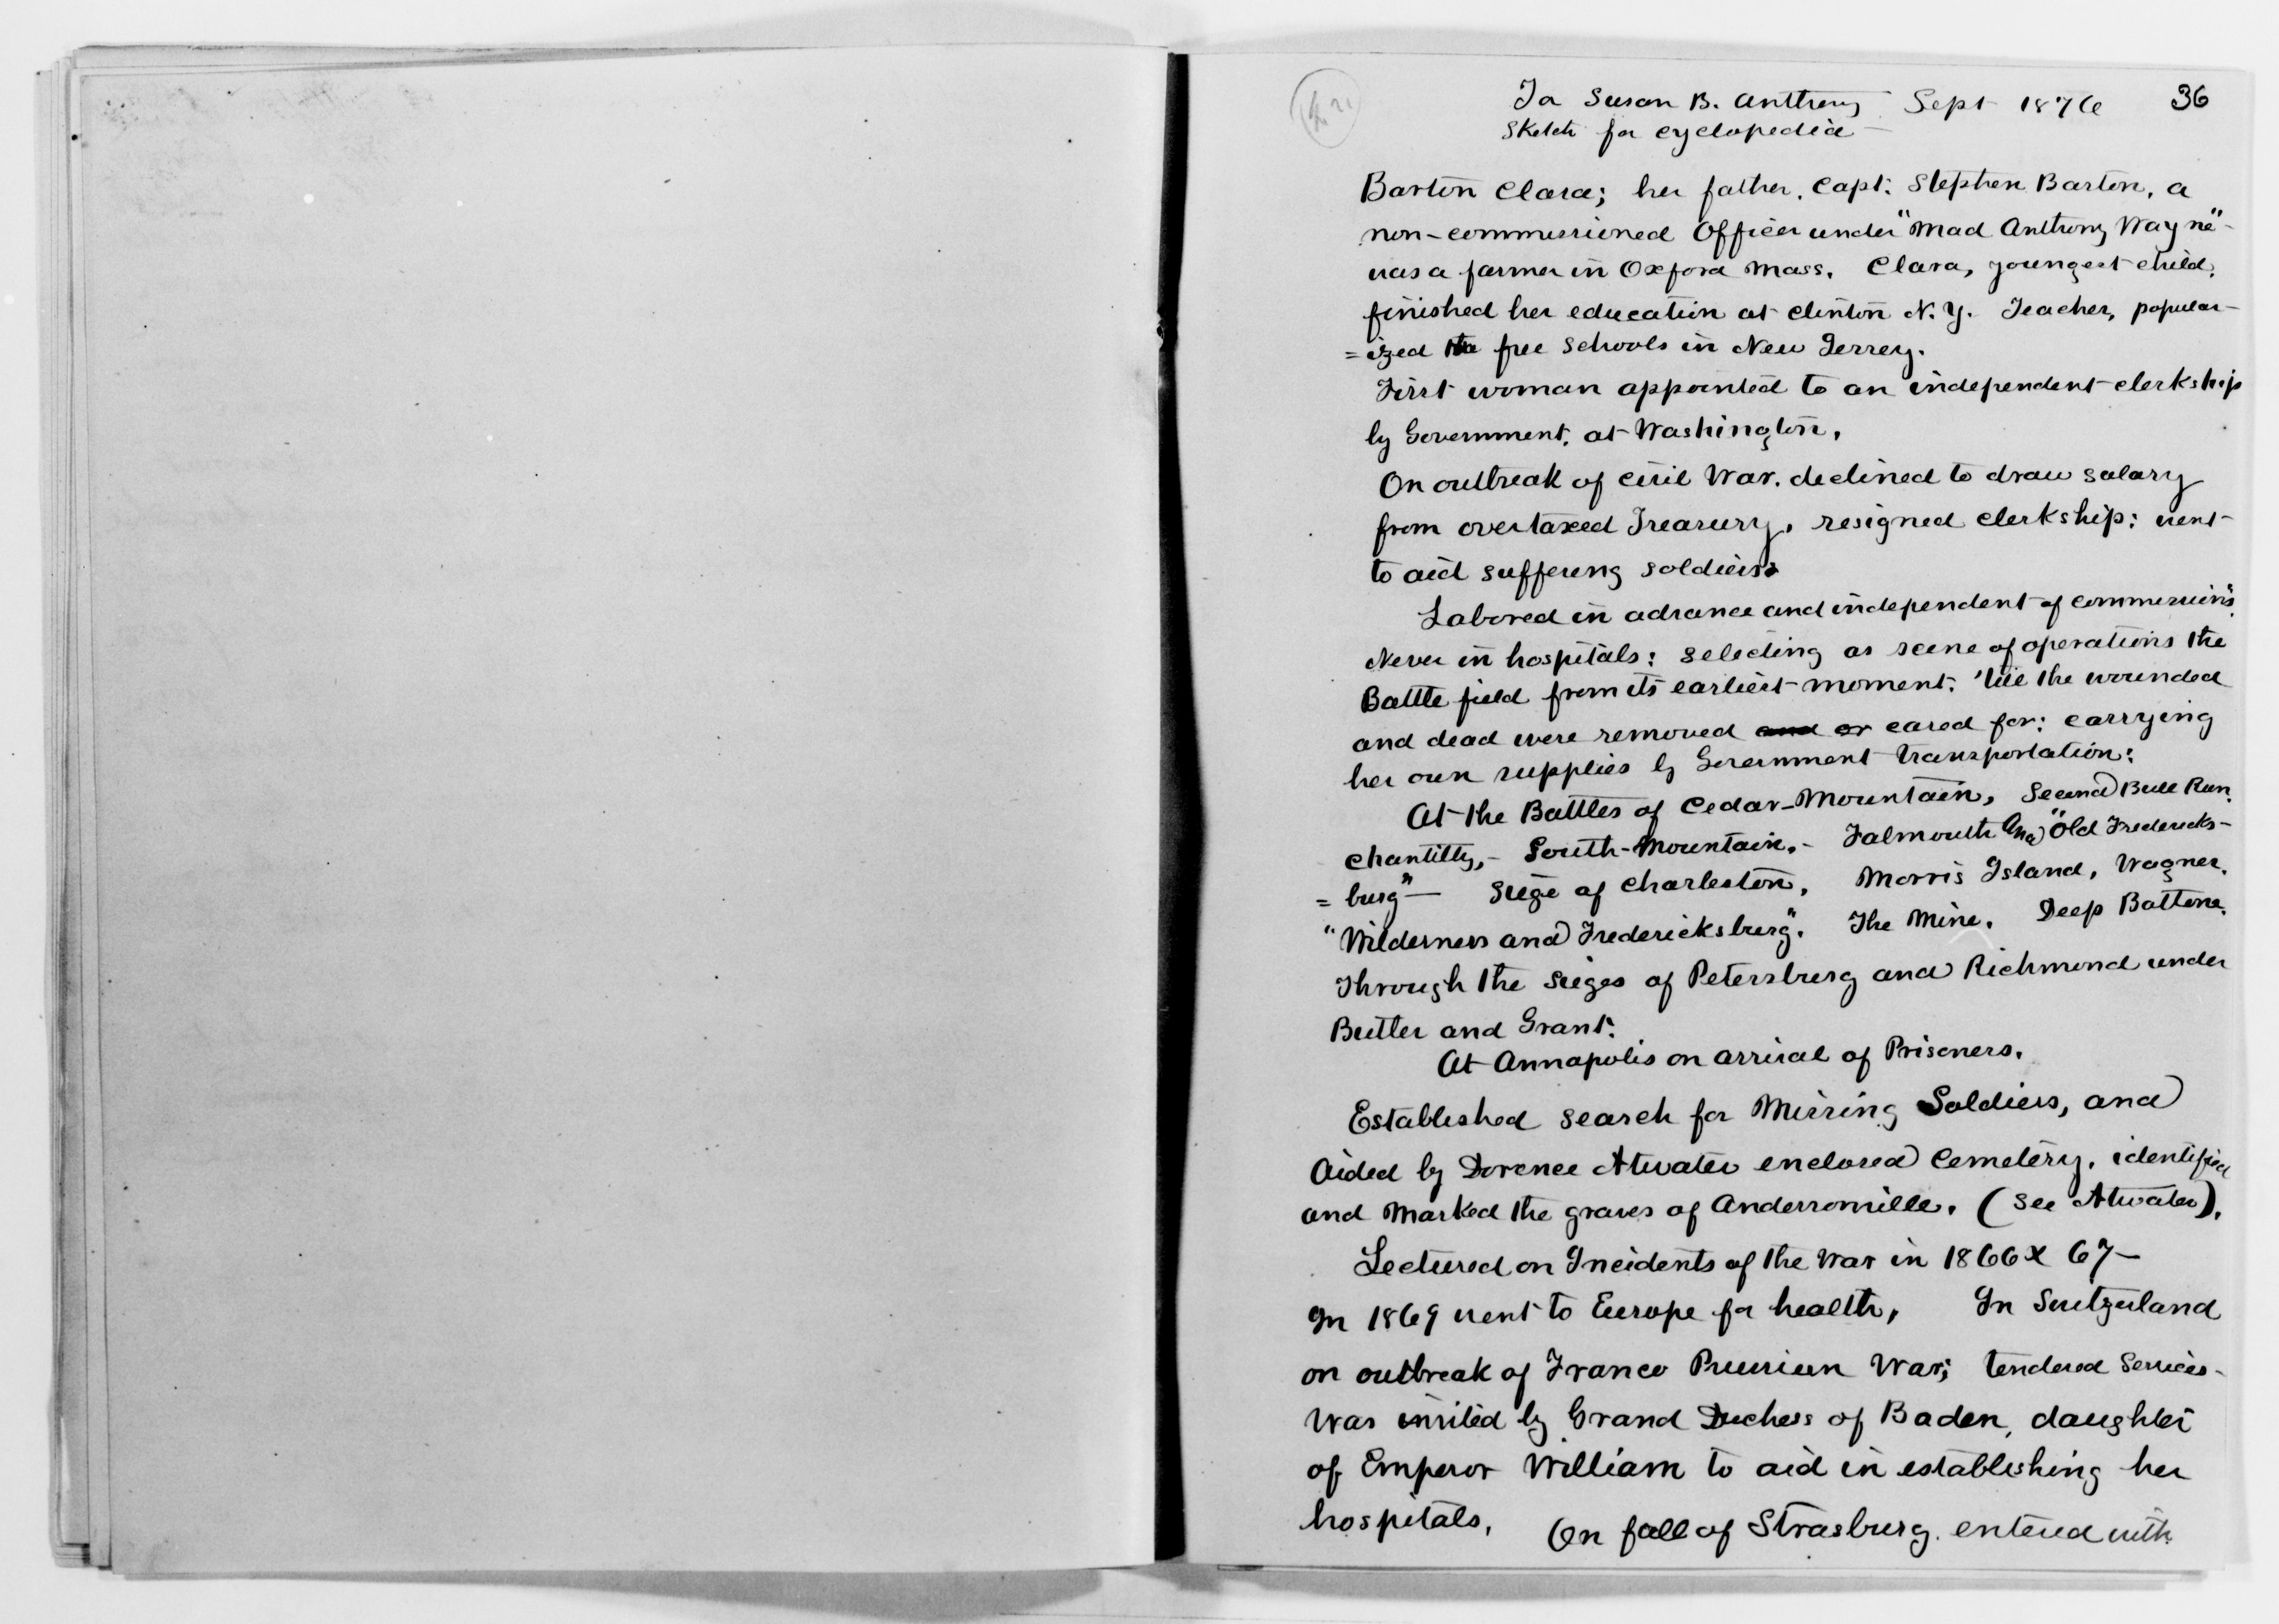 To Susan B. Anthony Sept 1876 36
Sketch for cyclopedia —
Barton Clara; her father. Capt. Stephen Barton, a
non-commissioned Officer under "Mad Anthony Wayne" -
was a farmer in Oxford Mass. Clara, youngest child.
finished her education at Clinton N.Y. Teacher, popular-
=ized the free schools in New Jersey.
First woman appointed to an independent clerkship
by Government. at Washington.
On outbreak of Civil War. declined to draw salary
from overtaxed Treasury, resigned clerkship: went
to aid suffering soldiers.
Labored in advance and independent of commissions.
Never in hospitals: selecting as scene of operations the
Battle field from its earliest moment. 'till the wounded
and dead were removed and or cared for: carrying
her own supplies by Government transportation:
At the Battles of Cedar-Mountain, Second Bull Run.
Chantilly, - South-Mountain. - Falmouth and "Old Fredericks-
=burg" — Siege of Charleston, Morris Island, Wagner.
"Wilderness and Fredericksburg". The Mine. Deep Bottom.
Through the sieges of Petersburg and Richmond under
Butler and Grant.
At Annapolis on arrival of Prisoners.
Established search for Missing Soldiers, and
aided by Dorence Atwater enclosed Cemetery, identified
and marked the graves of Andersonville. (See Atwater).
Lectured on Incidents of the War in 1866 & 67 —
In 1869 went to Europe for health, In Switzerland
on outbreak of Franco Prussian War; tendered services -
Was invited by Grand Duchess of Baden, daughter
of Emperor William to aid in establishing her
hospitals. On fall of Strasburg. entered with